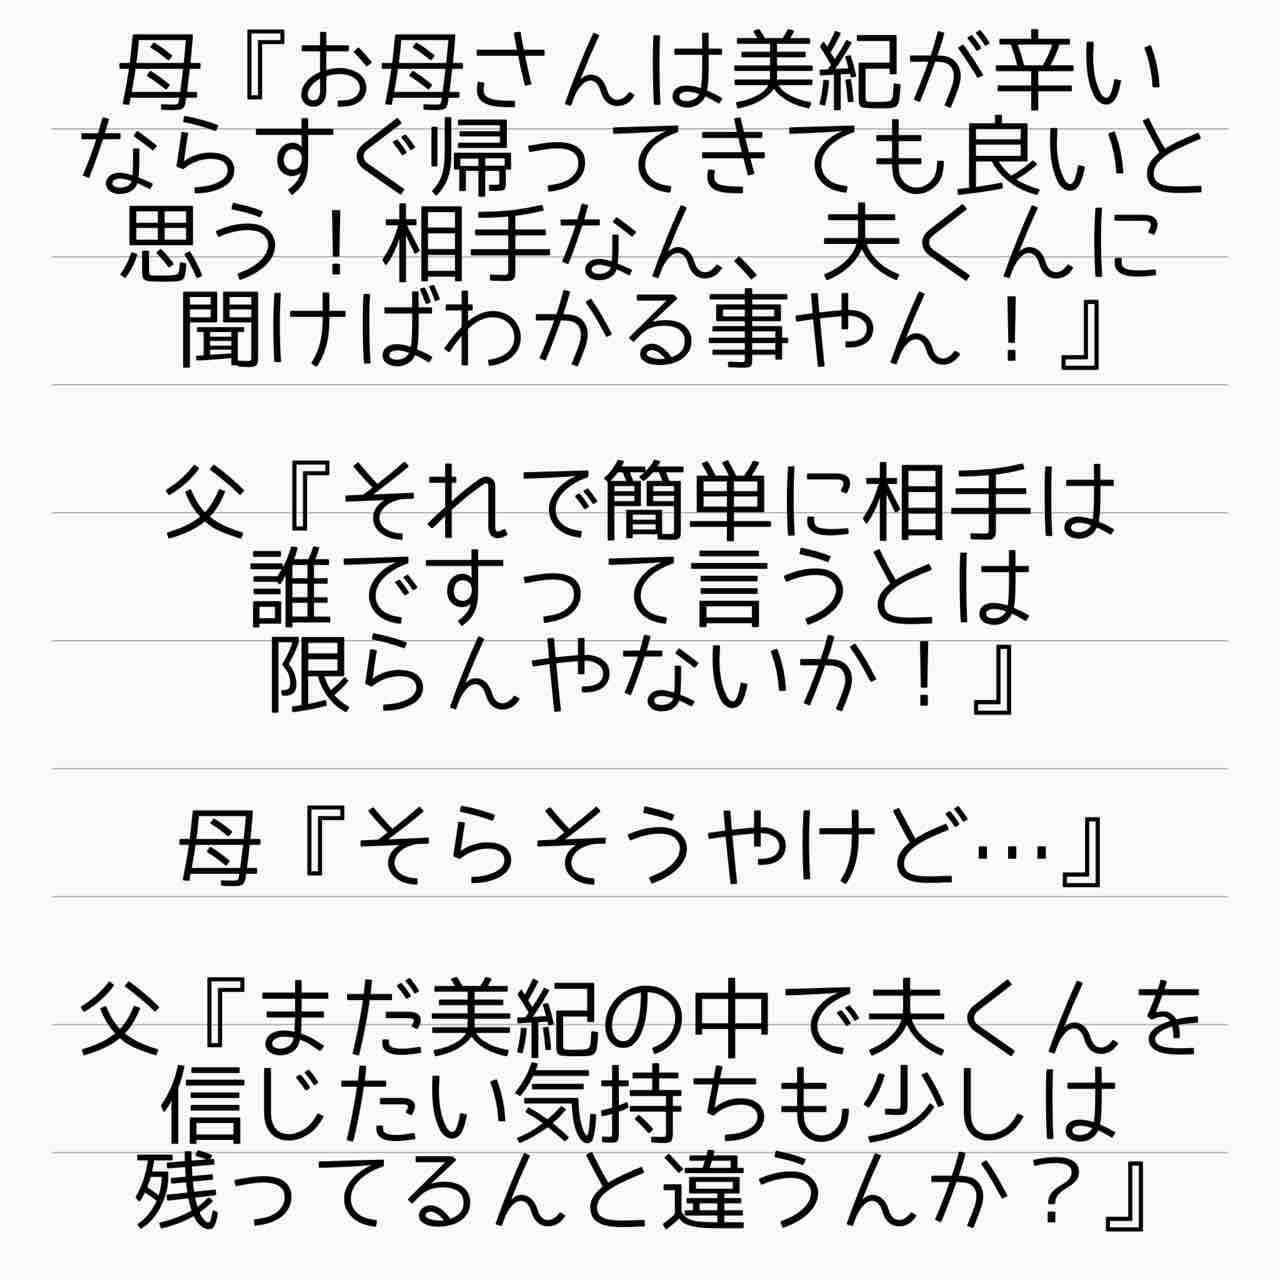 母『お母さんは美紀が辛い
ならすぐ帰ってきても良いと
思う！相手なん、夫くんに
聞けばわかる事やん！』
父『それで簡単に相手は
誰ですって言うとは
限らんやないか！』
母『そらそうやけど…』
父『まだ美紀の中で夫くんを
信じたい気持ちも少しは
残ってるんと違うんか？』